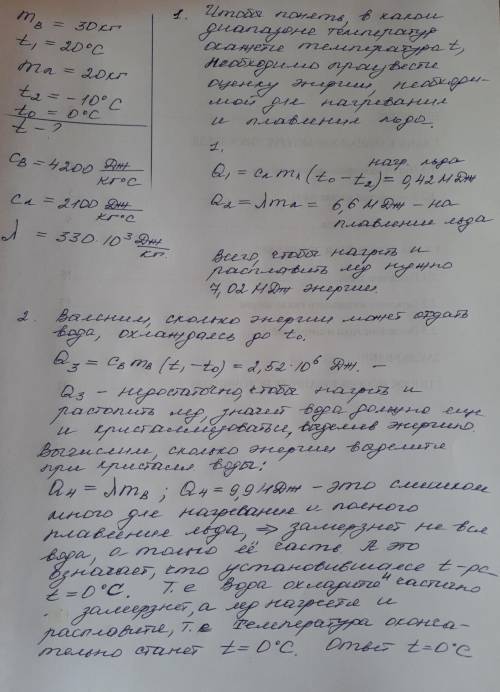 mв = 30кг
t₁ = 20°C
mл = 20кг
t₂ = -10°C
t₀ = 0°C
t - ?
cв = 4200 Дж/кг°C
cл = 2100 Дж/кг°C
λ = 330·10³ Дж/кг.
1. Чтобы понять, в каком
диапазоне температур
окажется температура t,
необходимо произвести
оценку энергии, необходи-
мой для нагревания
и плавления льда.
1.
нагр. льда
Q₁ = cл mл (t₀ - t₂) = 0,42 МДж
Q₂ = λmл = 6,6 МДж - на
плавление льда
Всего, чтобы нагреть и
расплавить лёд нужно
7,02 МДж энергии
2. Выясним, сколько энергии может отдать
вода, охлаждаясь до t₀.
Q₃ = cв mв (t₁ - t₀) = 2,52·10⁶ Дж. -
Q₃ - недостаточно, чтобы нагреть и
растопить лёд, значит вода должна ещё
и кристаллизоваться, выделяя энергию
Вычислим, сколько энергии выделится
при кристалл воды:
Q₄ = λmв ; Q₄ = 9,9 МДж - это слишком
много для нагревания и полного
плавления льда, => замёрзнет не вся
вода, а только её часть А это
означает, что установившаяся t-ра
t = 0°C. Т.е вода охладится частично
замёрзнет, а лёд нагреется и
расплавится, т.е температура оконча-
тельно станет t = 0°C. Ответ t = 0°C